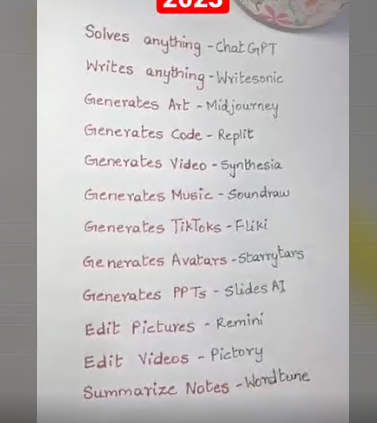 2023
Solves anything - ChatGPT
Writes anything - Writesonic
Generates Art - Midjourney
Generates Code - Replit
Generates Video - Synthesia
Generates Music - Soundraw
Generates TikToks - Fliki
Generates Avatars - Starrytars
Generates PPTs - Slides AI
Edit Pictures - Remini
Edit Videos - Pictory
Summarize Notes - Wordtune